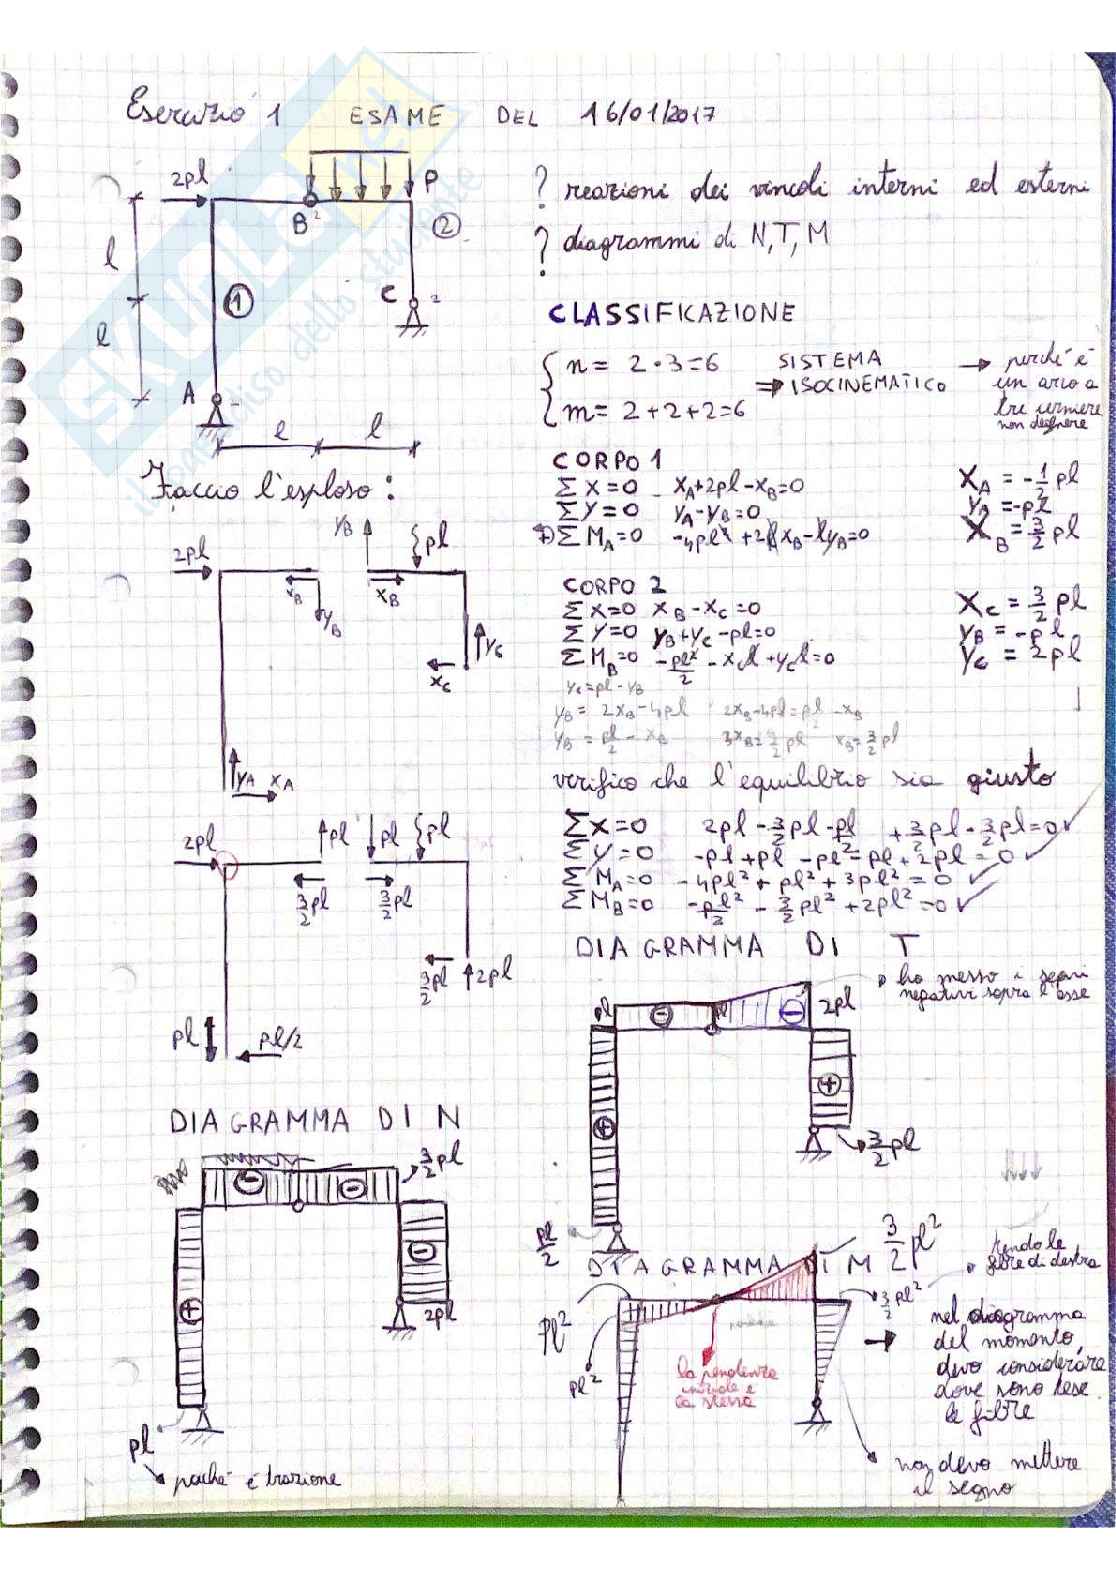 Esercizio 1 ESAME DEL 16/01/2017
SKUOLA.net
il paradiso dello studente
2pl
p
B
2
②
l
①
C
2
l
A
l
l
? reazioni dei vincoli interni ed esterni
? diagrammi di N,T,M
CLASSIFICAZIONE
n= 2·3=6 SISTEMA → perché è
⇒ ISOCINEMATICO un arco a
m= 2+2+2=6 tre cerniere
non degenere
Faccio l'esploso:
CORPO 1
∑X=0 XA+2pl-XB=0 XA = -1/2 pl
∑Y=0 YA-YB=0 YA=-pl
∑MA=0 -4pl²+2lXB-lYB=0 XB=3/2 pl
YB
pl
2pl
XB
XB
YB
YC
XC
YA XA
CORPO 2
∑X=0 XB-XC=0 XC=3/2 pl
∑Y=0 YB+YC-pl=0 YB=-pl
∑MB=0 -pl²/2 -XCl+YCl=0 YC=2pl
YC=pl-YB
YB= 2XB-4pl 2XB-4pl=pl/2-XB
YB= pl/2-XB 3XB=9/2 pl XB=3/2 pl
verifico che l'equilibrio sia giusto
∑X=0 2pl-3/2pl-pl/2 +3/2pl-3/2pl=0✓
∑Y=0 -pl+pl-pl-pl+2pl=0✓
∑MA=0 -4pl²+pl²+3pl²=0✓
∑MB=0 -pl²/2-3/2pl²+2pl²=0✓
2pl
pl
pl
pl
3/2pl
3/2pl
3/2pl
2pl
pl
pl/2
DIAGRAMMA DI T
ho messo i segni
negativi sopra l'asse
pl
⊖
pl
⊖
2pl
⊕
⊕
3/2pl
pl/2
DIAGRAMMA DI N
3/2pl
⊖
⊖
⊖
⊕
2pl
pl
poiché è trazione
DIAGRAMMA DI M 3/2pl²
tendo le
fibre di destra
pl²
3/2pl²
pl²
la pendenza
iniziale è
la stessa
→ nel diagramma
del momento,
devo considerare
dove sono tese
le fibre
non devo mettere
il segno